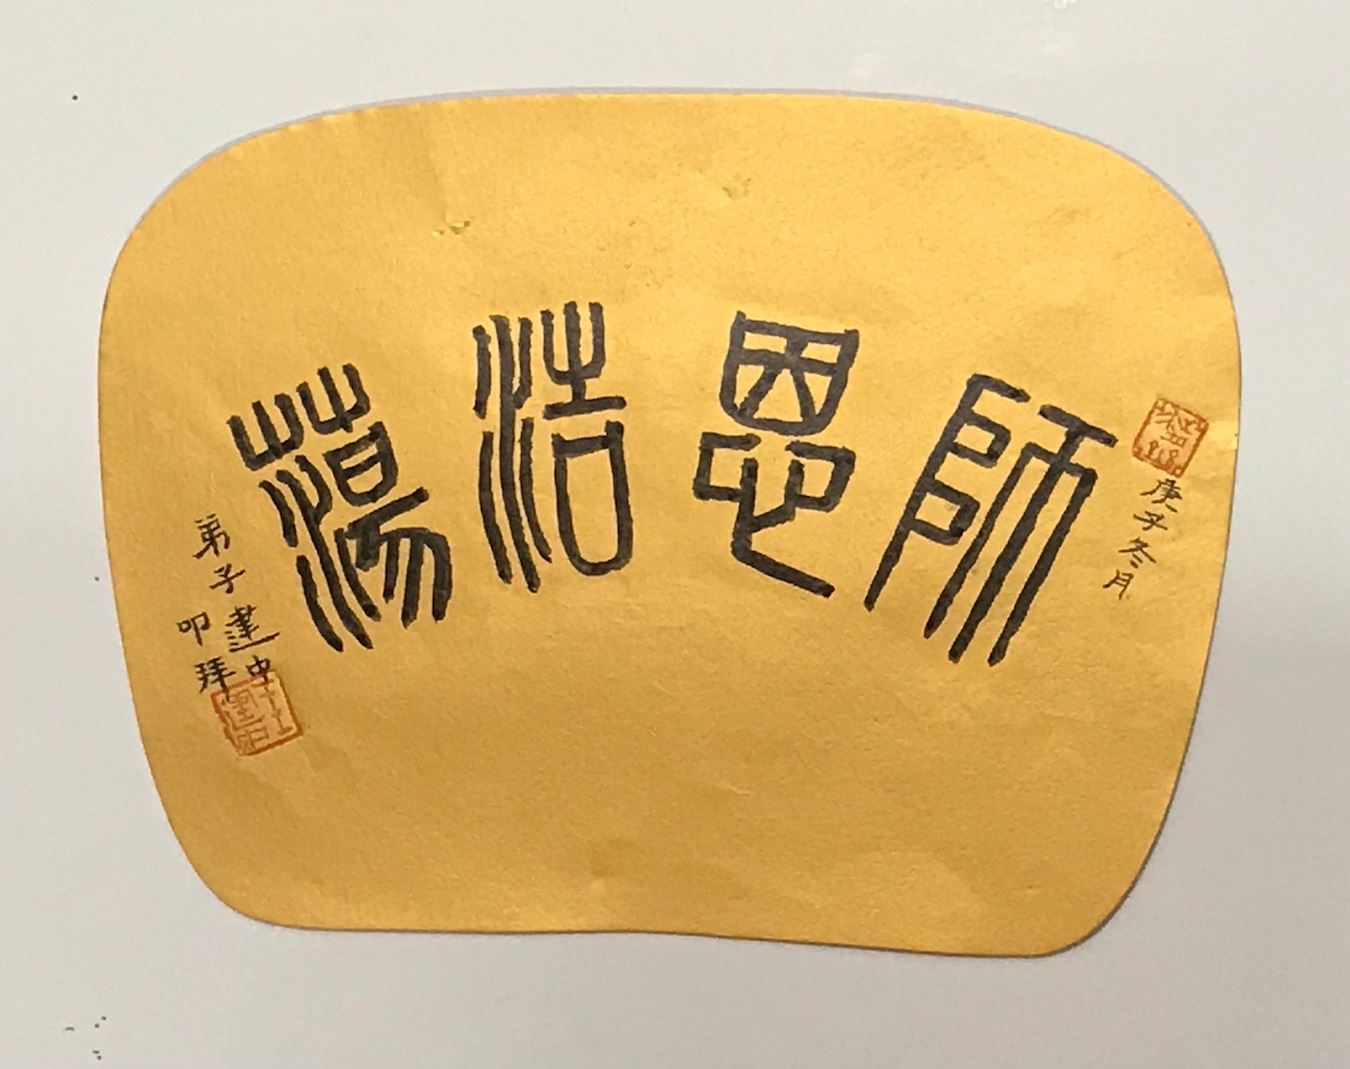 庚子冬月
師恩浩蕩
弟子建中
叩拜